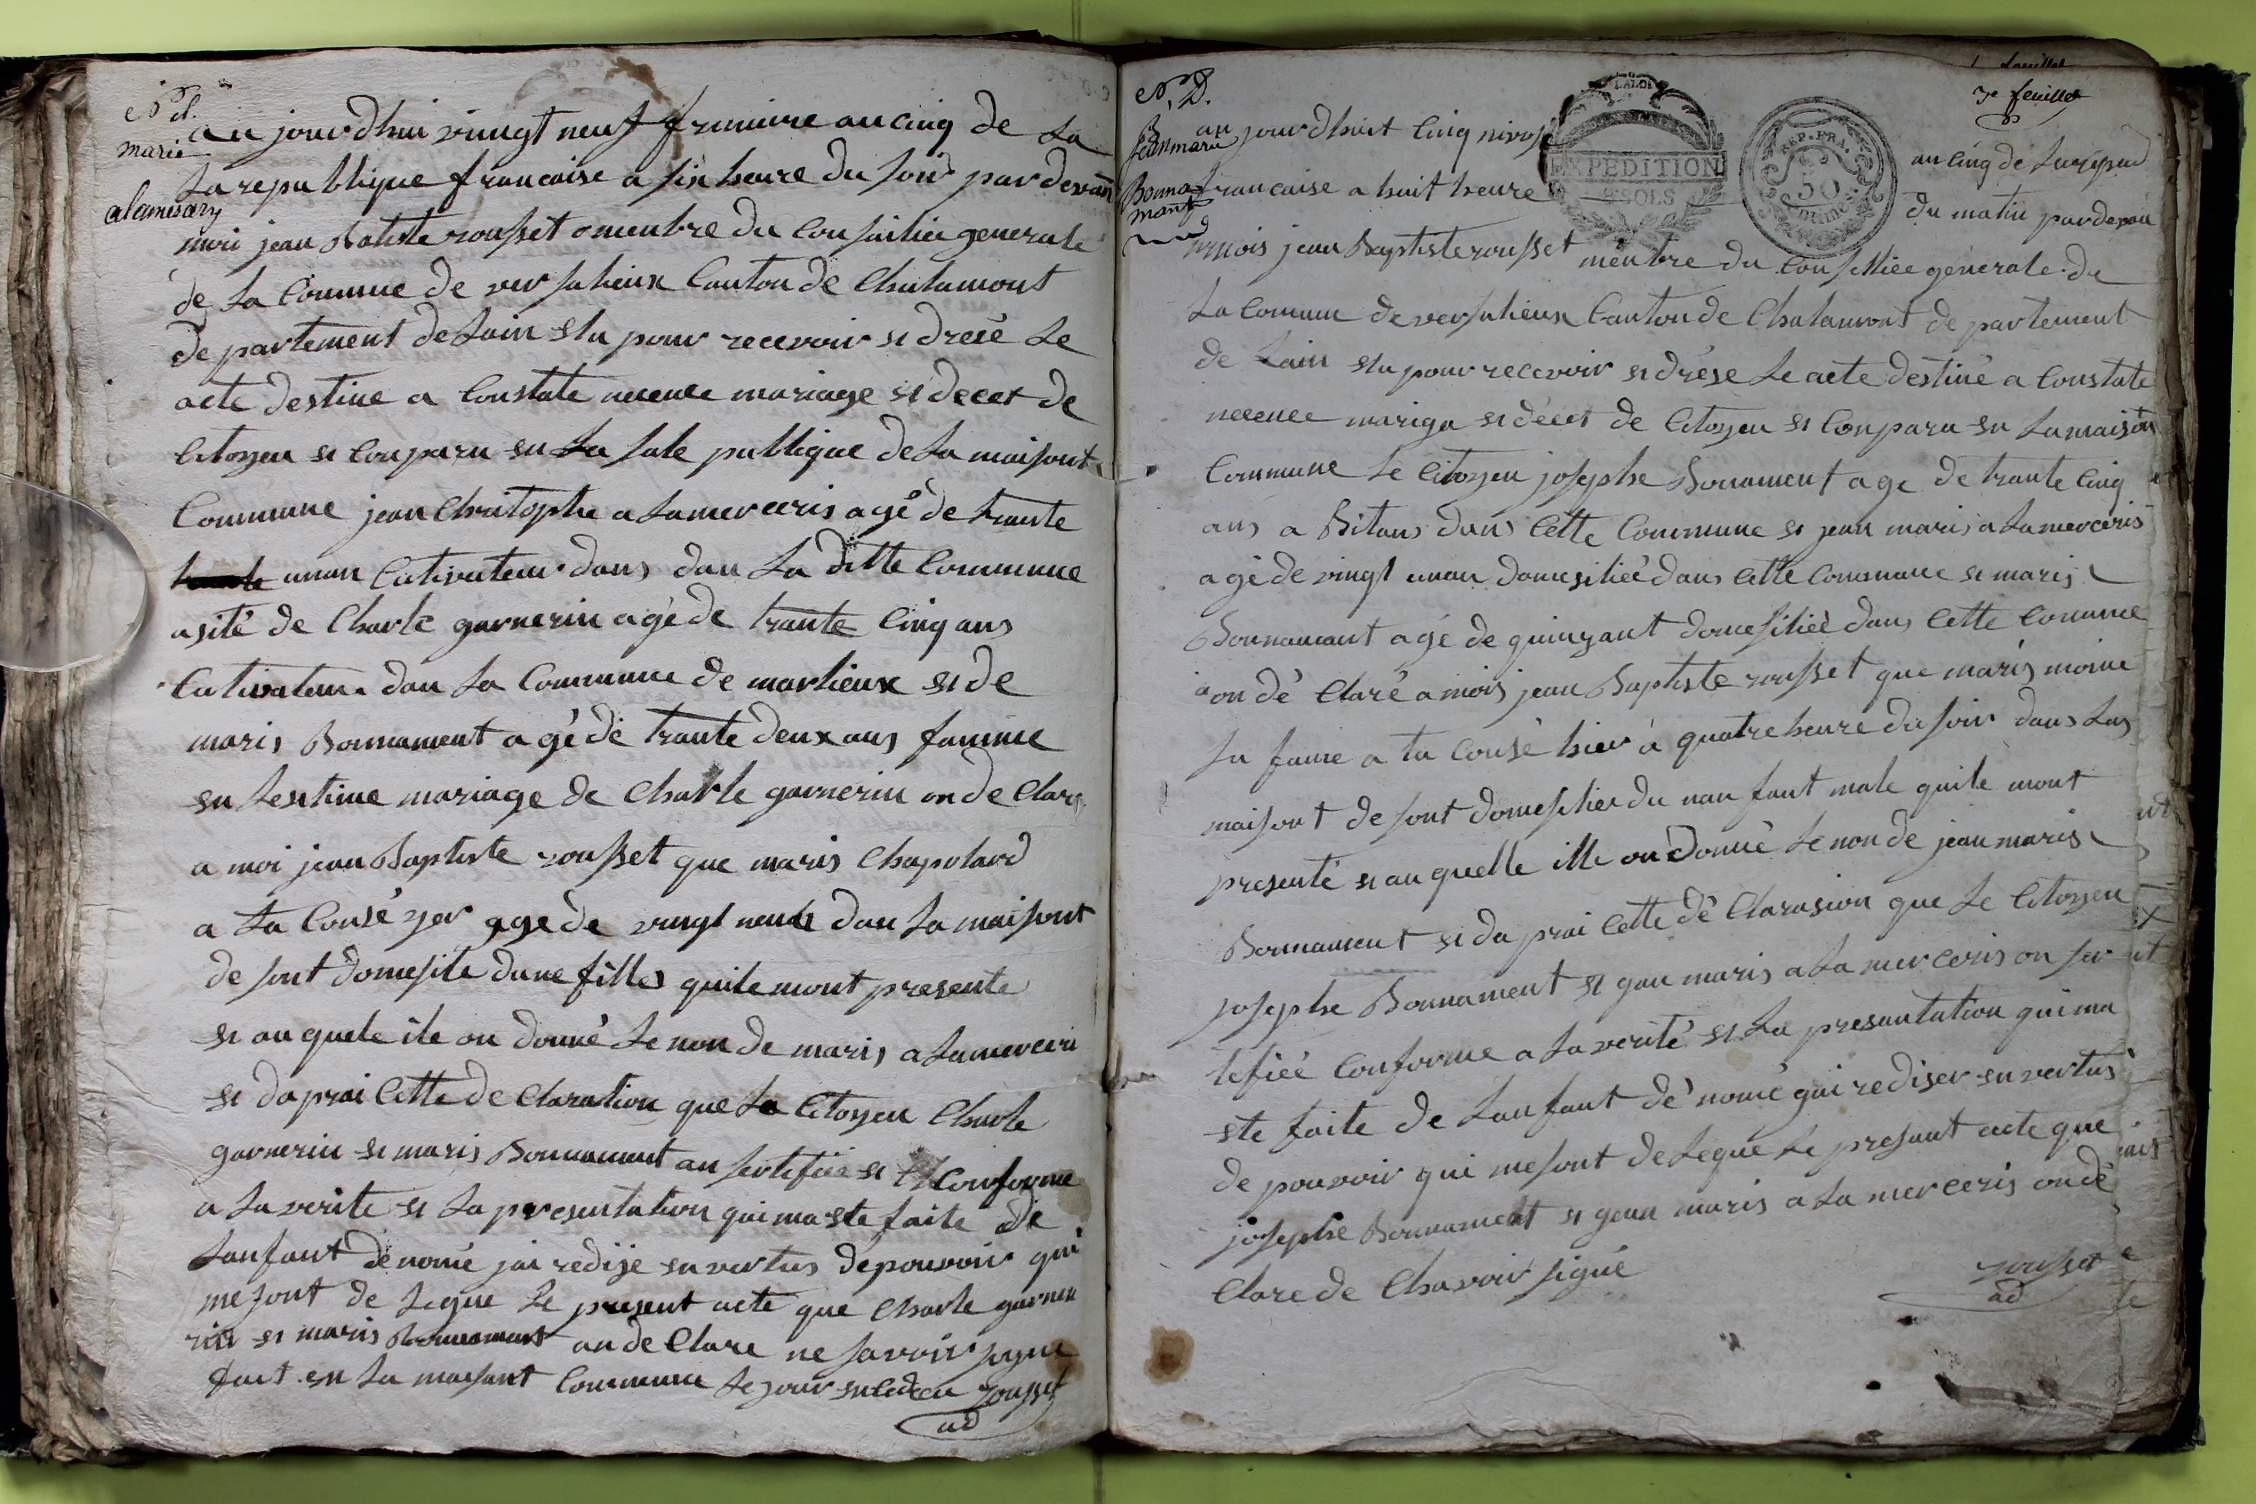 marie
alamersery
au jourdhui vingt neuf frimaire an cinq de La
La republique francaise a six heure du soir par devant
moi jean Batiste rousset omenbre du Conseiliee generale
de La Commue de versalieux Canton de Chalamont
de partement de Lain elu pour recevoir et dresé Le
acte destine a Constate necence mariage et deces de
Citoyen et Conparu en La sale publique de La maisont
Commune jean Christophe a Lamerceris agé de trante
unan Cutivateur dans dan La ditte Commune
asité de Charle garnerin agé de trante Cinq ans
Cutivateur dan La Commune de marlieux et de
maris Bonnament agé de trante deux ans famme
en Lesntime mariage de Charle garnerin on de Clare
a moi jean Baptiste rousset que maris Chapolard
a ta Cousé yer age de vingt neuf dan La maisont
de sont domesile dune filles quile mont presente
et au quele ile on donné Le non de maris a Lamerceri
et daprai Cette de Claration que Le Citoyen Charle
garnerin et maris Bonnament an sertifiié et Conforme
a La verite et La presentation qui ma ete faite de
Lanfant denomé jai redije en vertus de pouvoir qui
me sont de Legue Le present acte que Charle garne
rin et maris Bonnament on de Clare ne savoir signe
fait en La maisont Commune Le jour en Rousset
ad
3e feuillet
N, 2.
jean marie
Bonna
mant
EXPEDITION
SOLS
REP. FRA.
50
Centimes
au jour dhuit Cinq nivose an Cinq de La repud
francaise a huit heure du matin par devan
mois jean Baptiste rousset menbre du Conselliee generale de
La Comune de versalieux Canton de Chalamont de partement
de Lain elu pour recevoir et drese Le acte destiné a Constate
necence mariga et décet de Citoyen et Conparu en La maison
Commune Le Citoyen josephe Bonnament age de trante Cinq
ans a Bitans dans Cette Commune et jean maris a Lamerceris
agé de vingt unan domesiliée dans Cette Commune et maris
Bonnamant agé de quinzant domesiliée dans Cette Comune
on dé Claré a mois jean Baptiste rousset que maris moine
sa fame a ta Cousé hier a quatre heure du soir dans Las
maisont de sont domesilier du nan fant male quile mont
presenté et au quelle ille on donné Le non de jean maris
Bonnament et da prai Cette dé Clarasion que Le Citoyen
josephe Bonnament et gan maris a La merceris on ser
tefieé Conforme a La verité et La presantation qui ma
ete faite de Lanfant dé nomé gai rediser en vertus
de pouvoir qui me sont de Legué Le presant acte que
josephe Bonnament et gean maris a La merceris on dé
Clare de Chavoir signé
rousset
ad